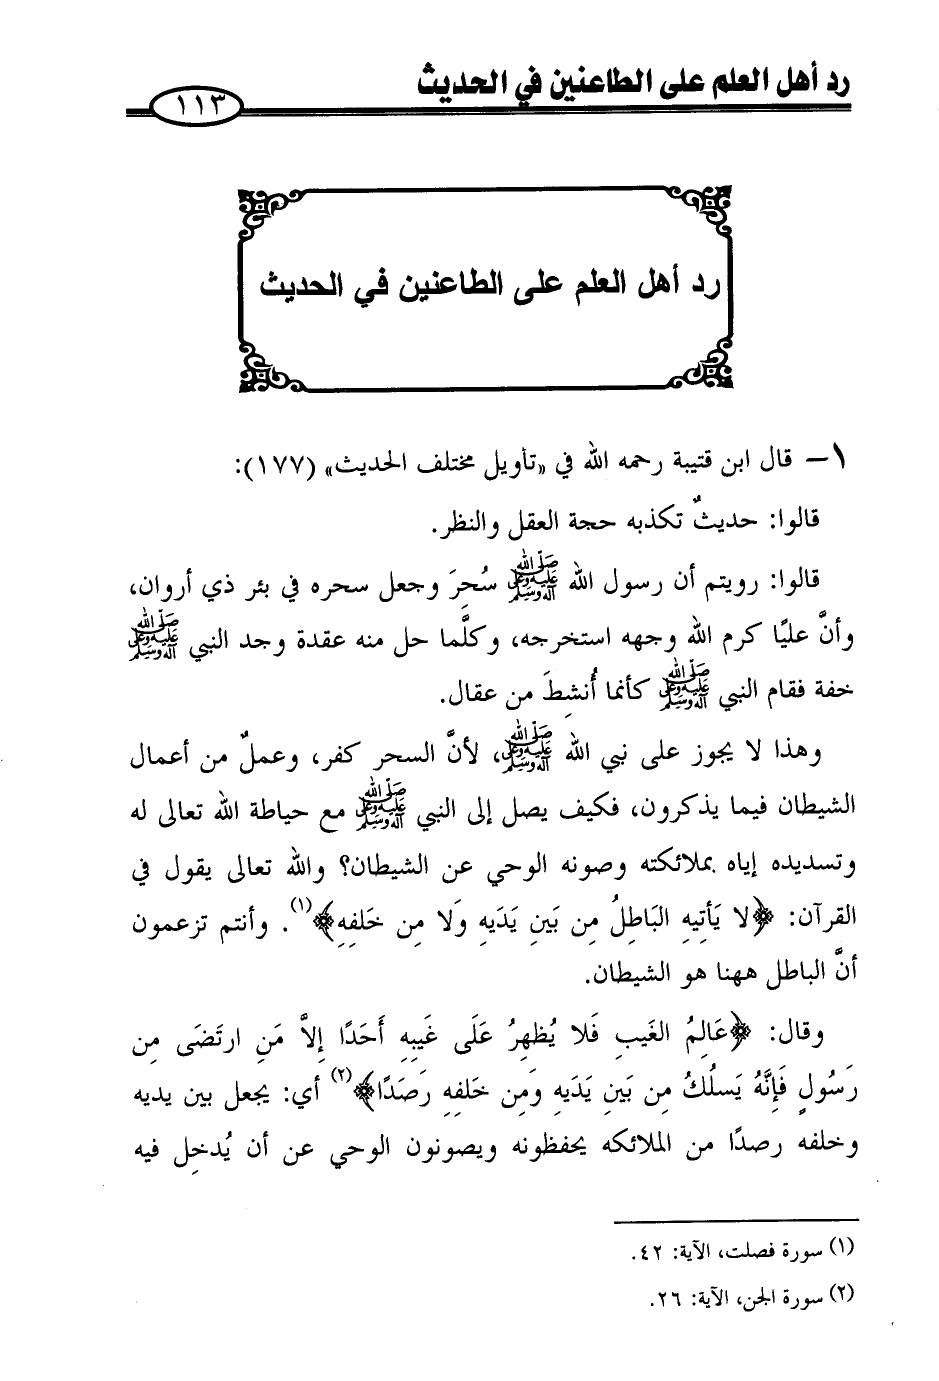 رد أهل العلم على الطاعنين في الحديث
١١٣
رد أهل العلم على الطاعنين في الحديث
١- قال ابن قتيبة رحمه الله في «تأويل مختلف الحديث» (١٧٧):
قالوا: حديثٌ تكذبه حجة العقل والنظر.
قالوا: رويتم أن رسول الله ﷺ سُحِرَ وجعل سحره في بئر ذي أروان،
وأنَّ عليًا كرم الله وجهه استخرجه، وكلَّما حل منه عقدة وجد النبي ﷺ
خفة فقام النبي ﷺ كأنما أُنشِطَ من عقال.
وهذا لا يجوز على نبي الله ﷺ، لأنَّ السحر كفر، وعملٌ من أعمال
الشيطان فيما يذكرون، فكيف يصل إلى النبي ﷺ مع حياطة الله تعالى له
وتسديده إياه بملائكته وصونه الوحي عن الشيطان؟ والله تعالى يقول في
القرآن: ﴿لا يَأتِيهِ البَاطِلُ مِن بَينِ يَدَيهِ وَلا مِن خَلفِهِ﴾(١). وأنتم تزعمون
أنَّ الباطل ههنا هو الشيطان.
وقال: ﴿عَالِمُ الغَيبِ فَلا يُظهِرُ عَلَى غَيبِهِ أَحَدًا إِلاَّ مَنِ ارتَضَى مِن
رَسُولٍ فَإِنَّهُ يَسلُكُ مِن بَينِ يَدَيهِ وَمِن خَلفِهِ رَصَدًا﴾(٢) أي: يجعل بين يديه
وخلفه رصدًا من الملائكه يحفظونه ويصونون الوحي عن أن يُدخِل فيه
(١) سورة فصلت، الآية: ٤٢.
(٢) سورة الجن، الآية: ٢٦.